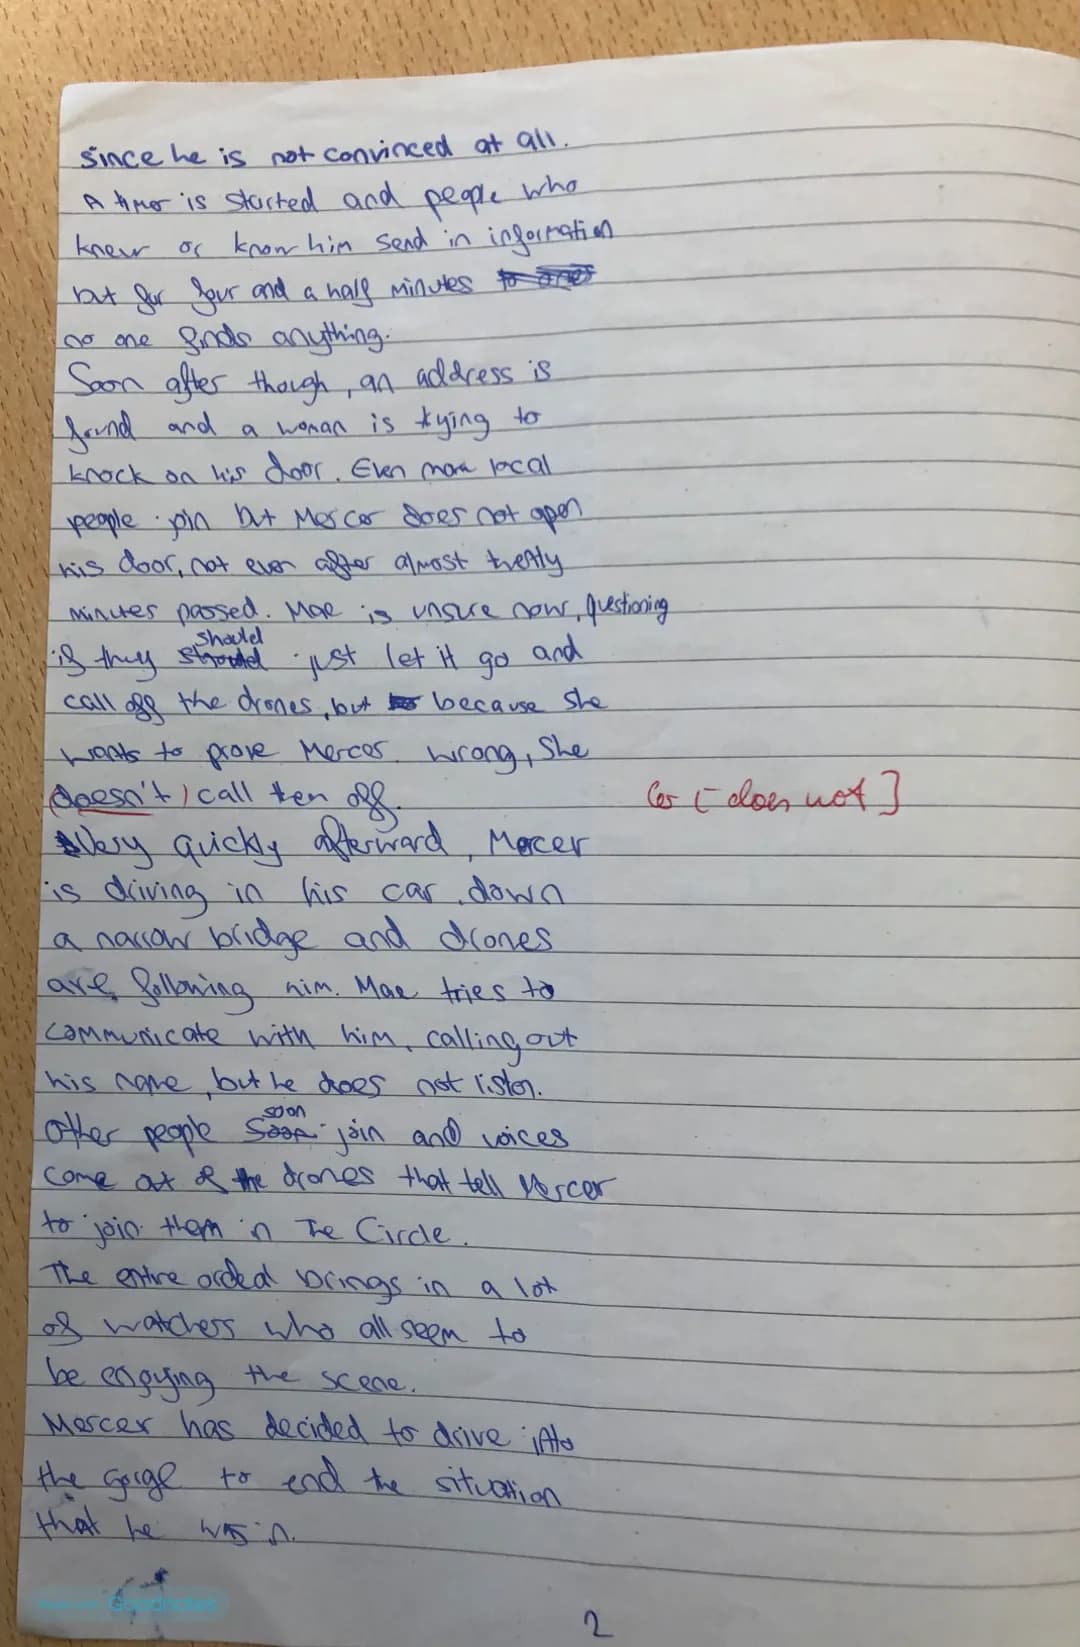 since he is not convinced at all.
A timer is started and people who
knew or know him send in information
but for four and a half minutes
no one finds anything.
Soon after though, an address is
found and a woman is trying to
knock on his door. Even more local
people join but Mercer does not open
his door, not even after almost twenty
minutes passed. Mae is unsure now, questioning
should
if they should just let it go and
call off the drones, but because she
wants to prove Mercer wrong, She
(doesn't) call them off.
Very quickly afterward, Mercer
is driving in his car down
a narrow bridge and drones
are following him. Mae tries to
communicate with him, calling out
his name, but he does not listen.
soon
Other people soon join and voices
come out of the drones that tell Mercer
to join them in The Circle.
The entire ordeal brings in a lot
of watchers who all seem to
be enjoying the scene.
Mercer has decided to drive into
the gorge to end the situation
that he was in.
[does not]
Goodnotes
2